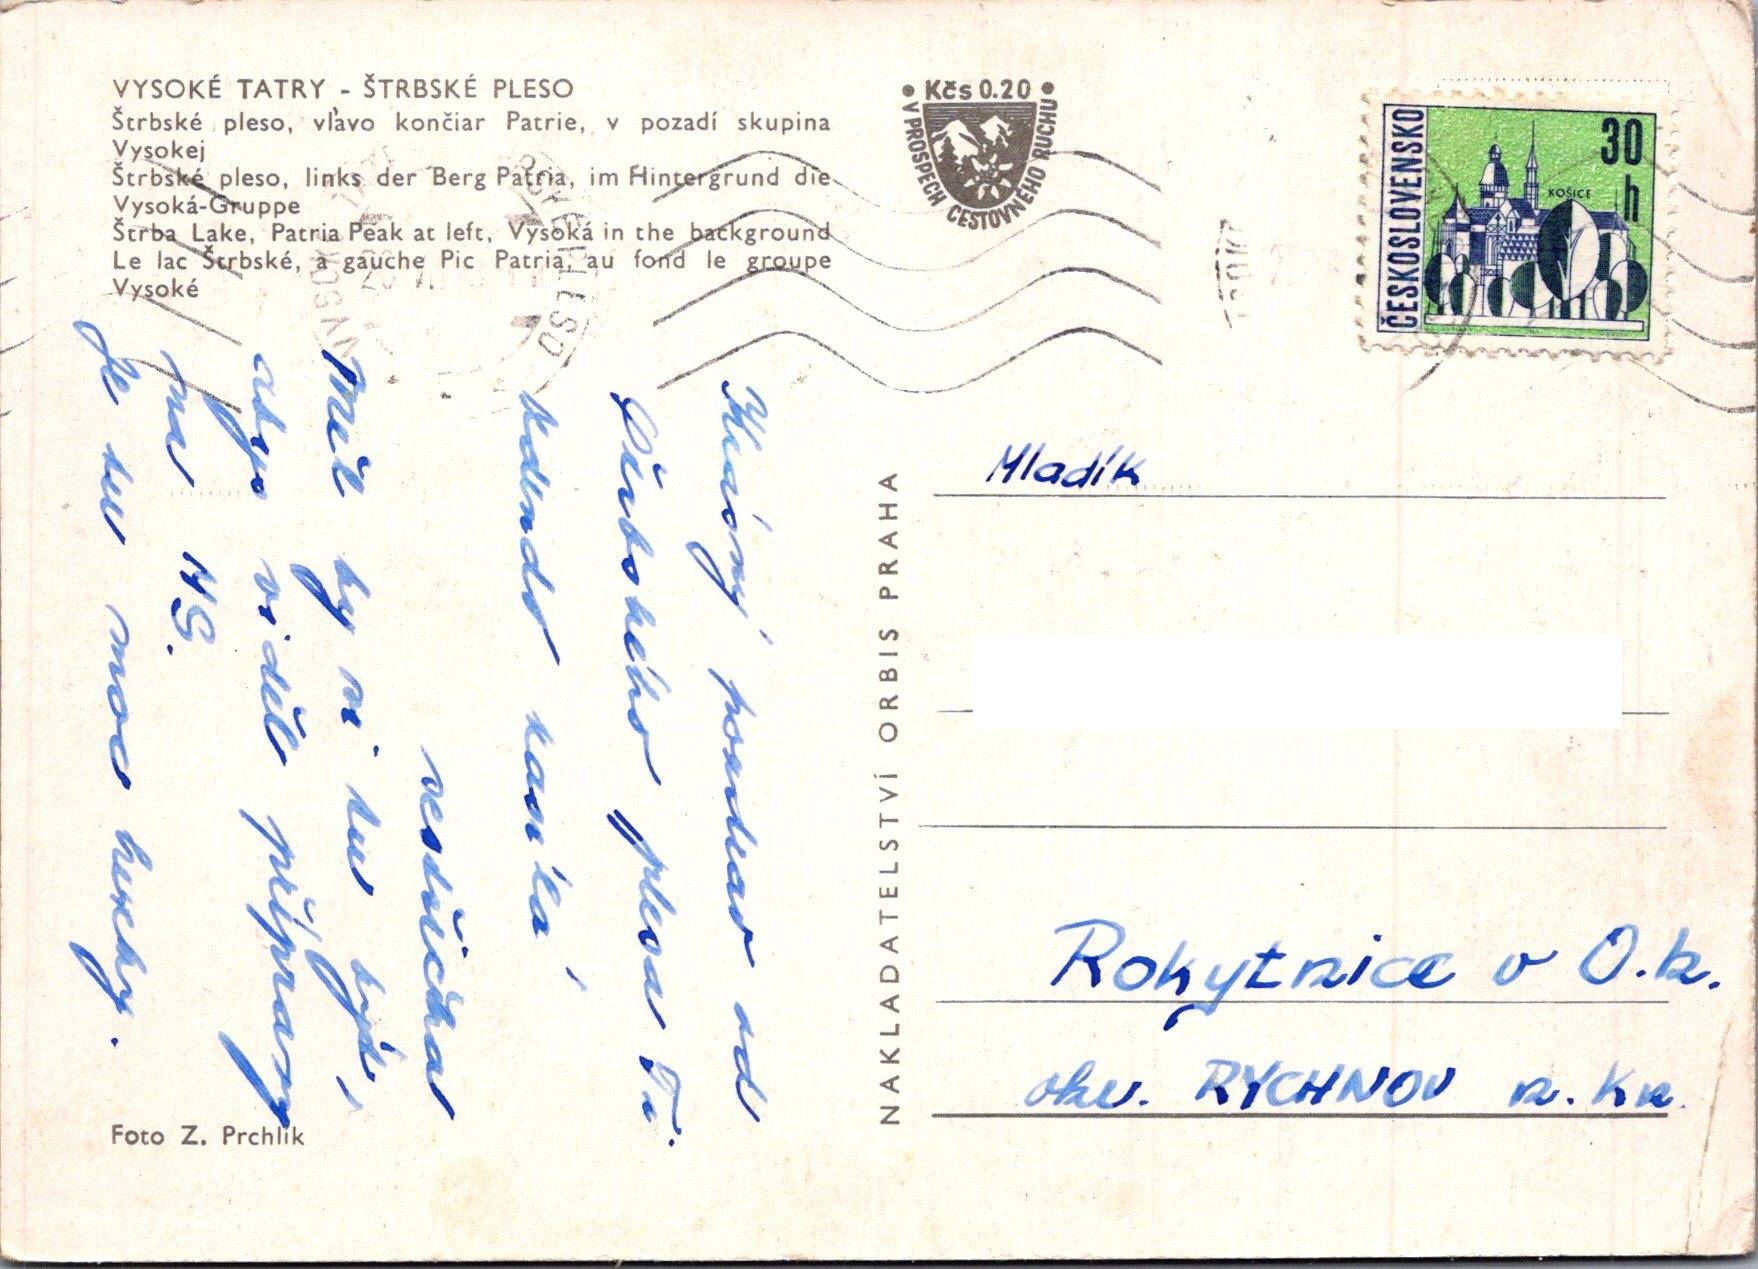 VYSOKÉ TATRY - ŠTRBSKÉ PLESO
Štrbské pleso, vľavo končiar Patrie, v pozadí skupina
Vysokej
Štrbské pleso, links der Berg Patria, im Hintergrund die
Vysoká-Gruppe
Štrba Lake, Patria Peak at left, Vysoká in the background
Le lac Štrbské, à gauche Pic Patria, au fond le groupe
Vysoké
Krásný pozdrav od
Štrbského plesa Ti
sestřička
Měl by si tu být
aby viděl přípravy
na MS.
Je tu moc hezky.
Foto Z. Prchlík
NAKLADATELSTVÍ ORBIS PRAHA
• Kčs 0.20 •
V PROSPECH CESTOVNÉHO RUCHU
ČESKOSLOVENSKO
30
h
KOŠICE
Mladík
Rokytnice v O.h.
okr. RYCHNOV n. Kn.